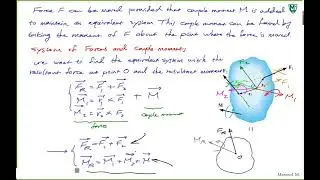 Force F can be moved provided that couple moment M is added
to maintain an equivalent system This couple moment can be found by
taking the moment of F about the point where the force is moved
System of Forces and couple moments
we want to find the equivalent system with the
resultant force at point O and the resultant moment
F_R = F_1 + F_2
M_1 = r_1 × F_1 + M
M_2 = r_2 × F_2
force couple moment
F_R = F_1 + F_2
M_R = M_1 + M_2 + M
F_2
F_1
M_2
M_1
O
M
F_R
M_R
O